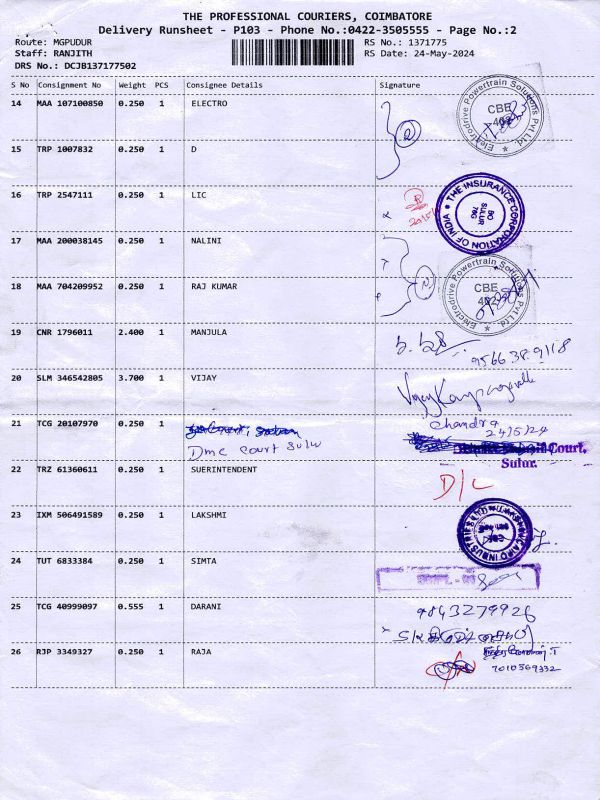 THE PROFESSIONAL COURIERS, COIMBATORE
Delivery Runsheet - P103 - Phone No.:0422-3505555 - Page No.:2
Route: MGPUDUR
RS No.: 1371775
Staff: RANJITH
RS Date: 24-May-2024
DRS No.: DCJB137177502
S No Consignment No Weight PCS Consignee Details Signature
14 MAA 107100850 0.250 1 ELECTRO
Electrodrive Powertrain Solutions Pvt Ltd. CBE
15 TRP 1007832 0.250 1 D
16 TRP 2547111 0.250 1 LIC
THE INSURANCE CORPORATION OF INDIA BO SULUR 76C
17 MAA 200038145 0.250 1 NALINI
18 MAA 704209952 0.250 1 RAJ KUMAR
Electrodrive Powertrain Solutions Pvt Ltd. CBE 402
19 CNR 1796011 2.400 1 MANJULA
20 SLM 346542805 3.700 1 VIJAY
21 TCG 20107970 0.250 1
Chandra
24/5/24
Dmc court Sulur
Court,
Sulur.
22 TRZ 61360611 0.250 1 SUERINTENDENT
D/C
23 IXM 506491589 0.250 1 LAKSHMI
24 TUT 6833384 0.250 1 SIMTA
25 TCG 40999097 0.555 1 DARANI
9843279926
26 RJP 3349327 0.250 1 RAJA
7010569332